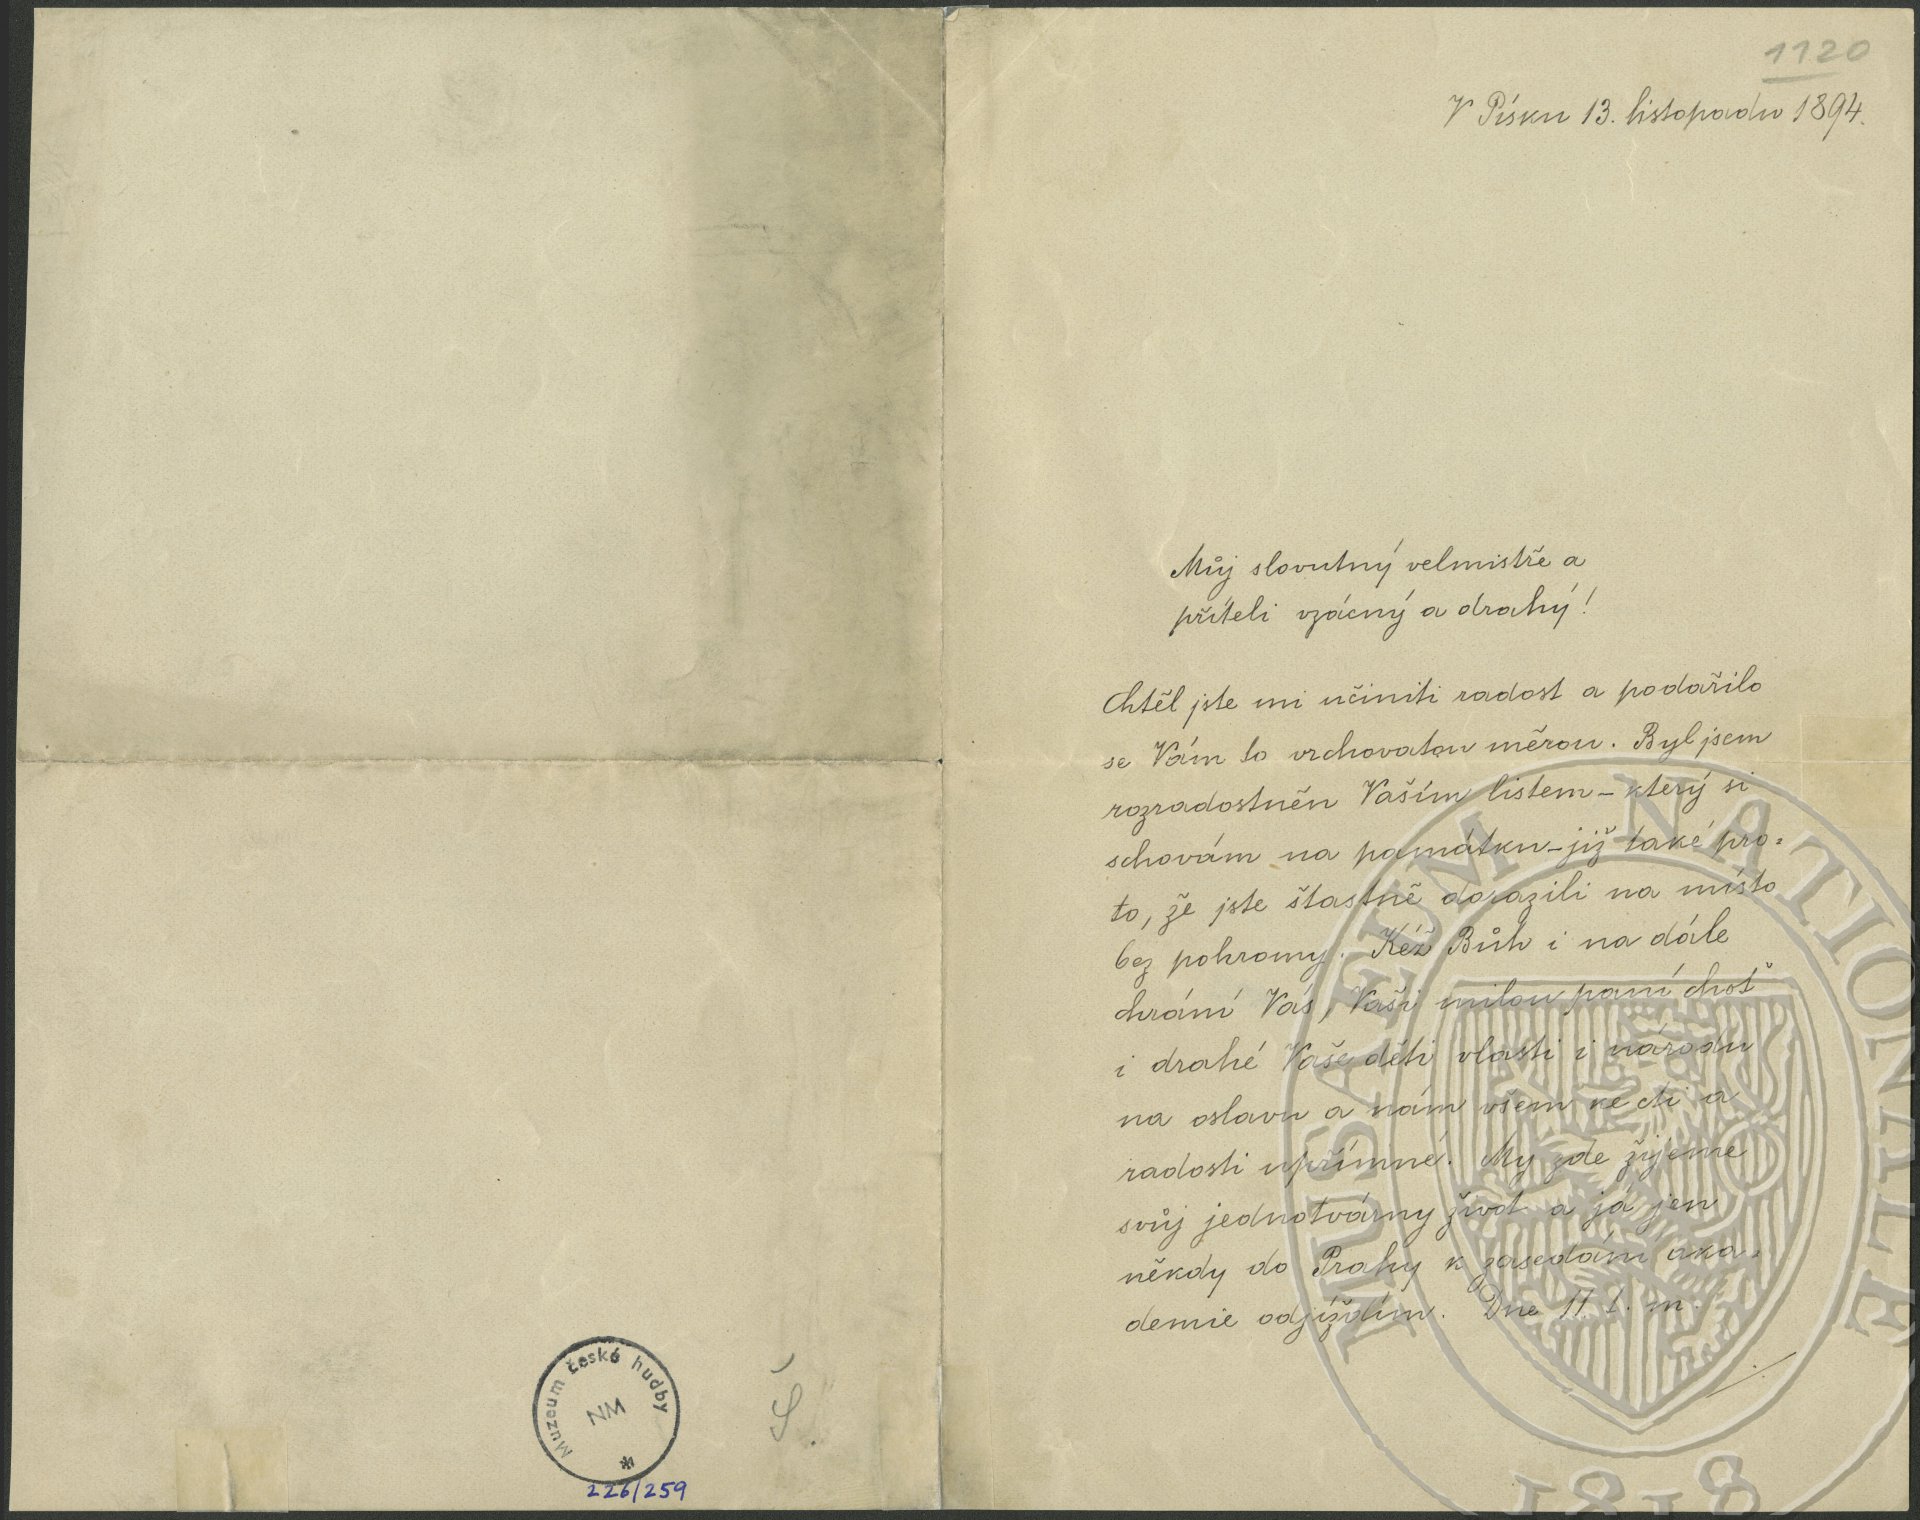 1120
V Písku 13. listopadu 1894.
Můj slovutný velmistře a
příteli vzácný a drahý!
Chtěl jste mi učiniti radost a podařilo
se Vám to vrchovatou měrou. Byl jsem
rozradostněn Vaším listem – který si
schovám na památku – již také pro=
to, že jste šťastně dorazili na místo
bez pohromy. Kéž Bůh i na dále
chrání Vás, Vaši milou paní choť
i drahé Vaše děti vlasti i národu
na oslavu a nám všem ke cti a
radosti upřímné. My zde žijeme
svůj jednotvárný život a já jen
někdy do Prahy k zasedání aka=
demie odjíždím. Dne 11. t. m.
Muzeum české hudby
NM
226/259
Š.
MUSAEUM NATIONALE
1818